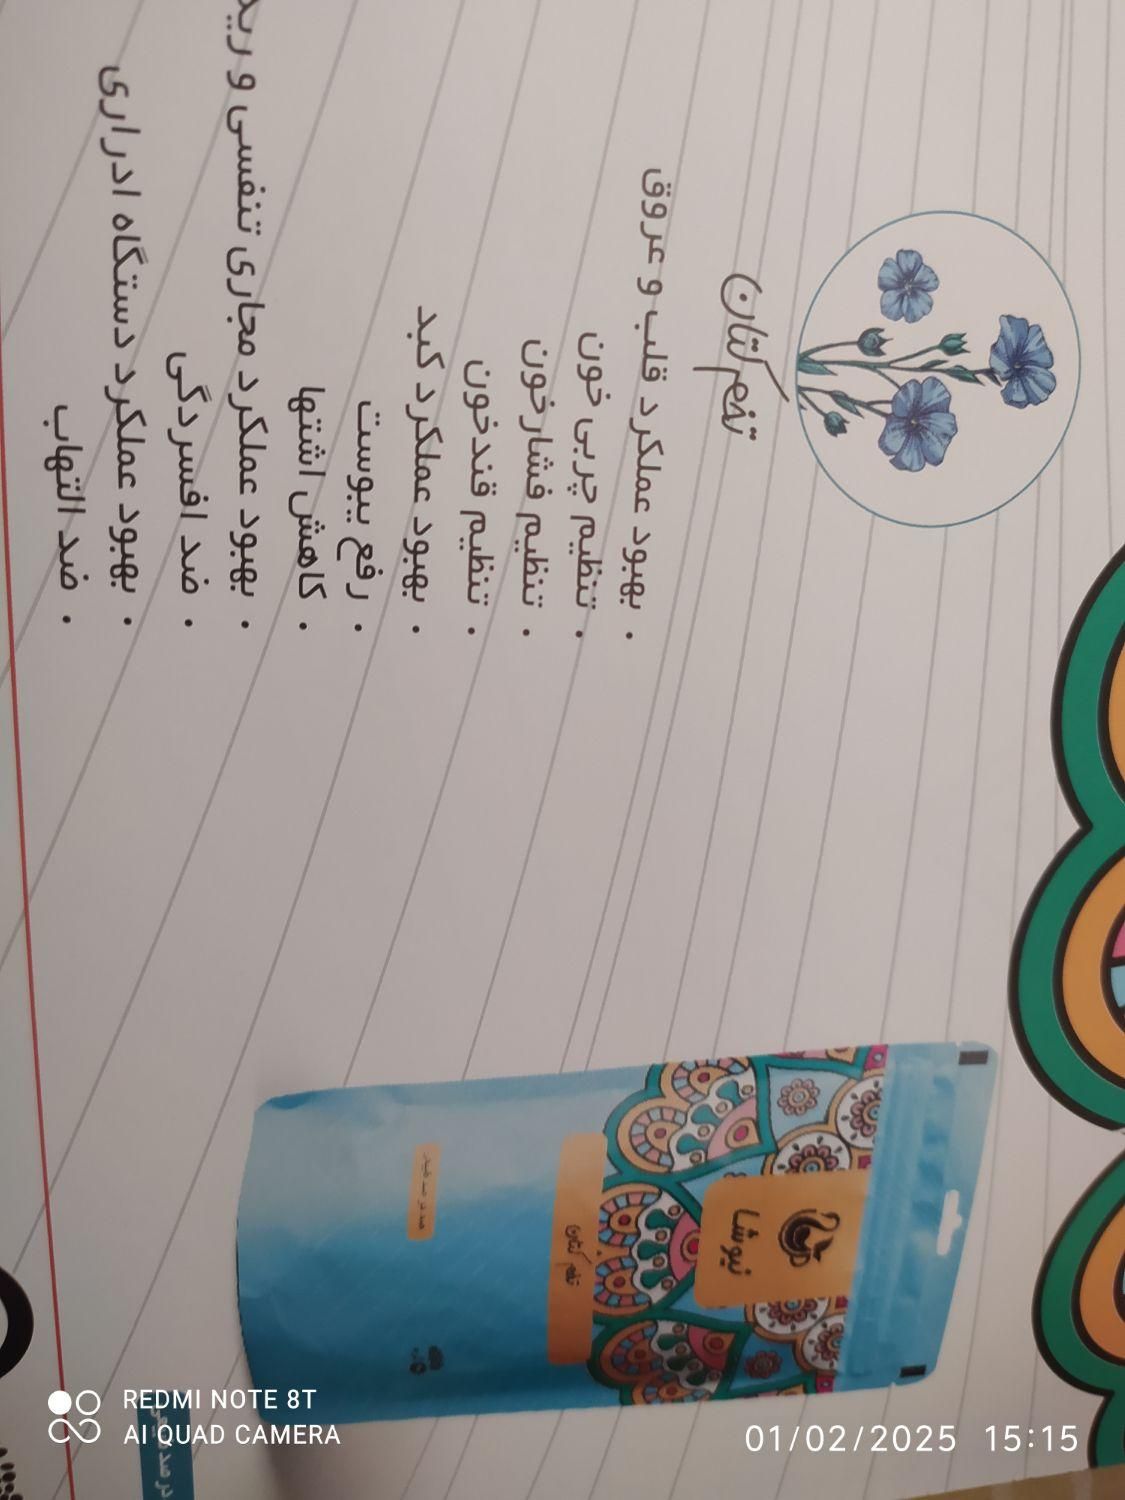 تخم کتان
• بهبود عملکرد قلب و عروق
• تنظیم چربی خون
• تنظیم فشارخون
• تنظیم قندخون
• بهبود عملکرد کبد
• رفع یبوست
• کاهش اشتها
• بهبود عملکرد مجاری تنفسی و
• ضد افسردگی
• بهبود عملکرد دستگاه ادراری
• ضد التهاب
نیوشا
تخم کتان
REDMI NOTE 8T
AI QUAD CAMERA
01/02/2025 15:15